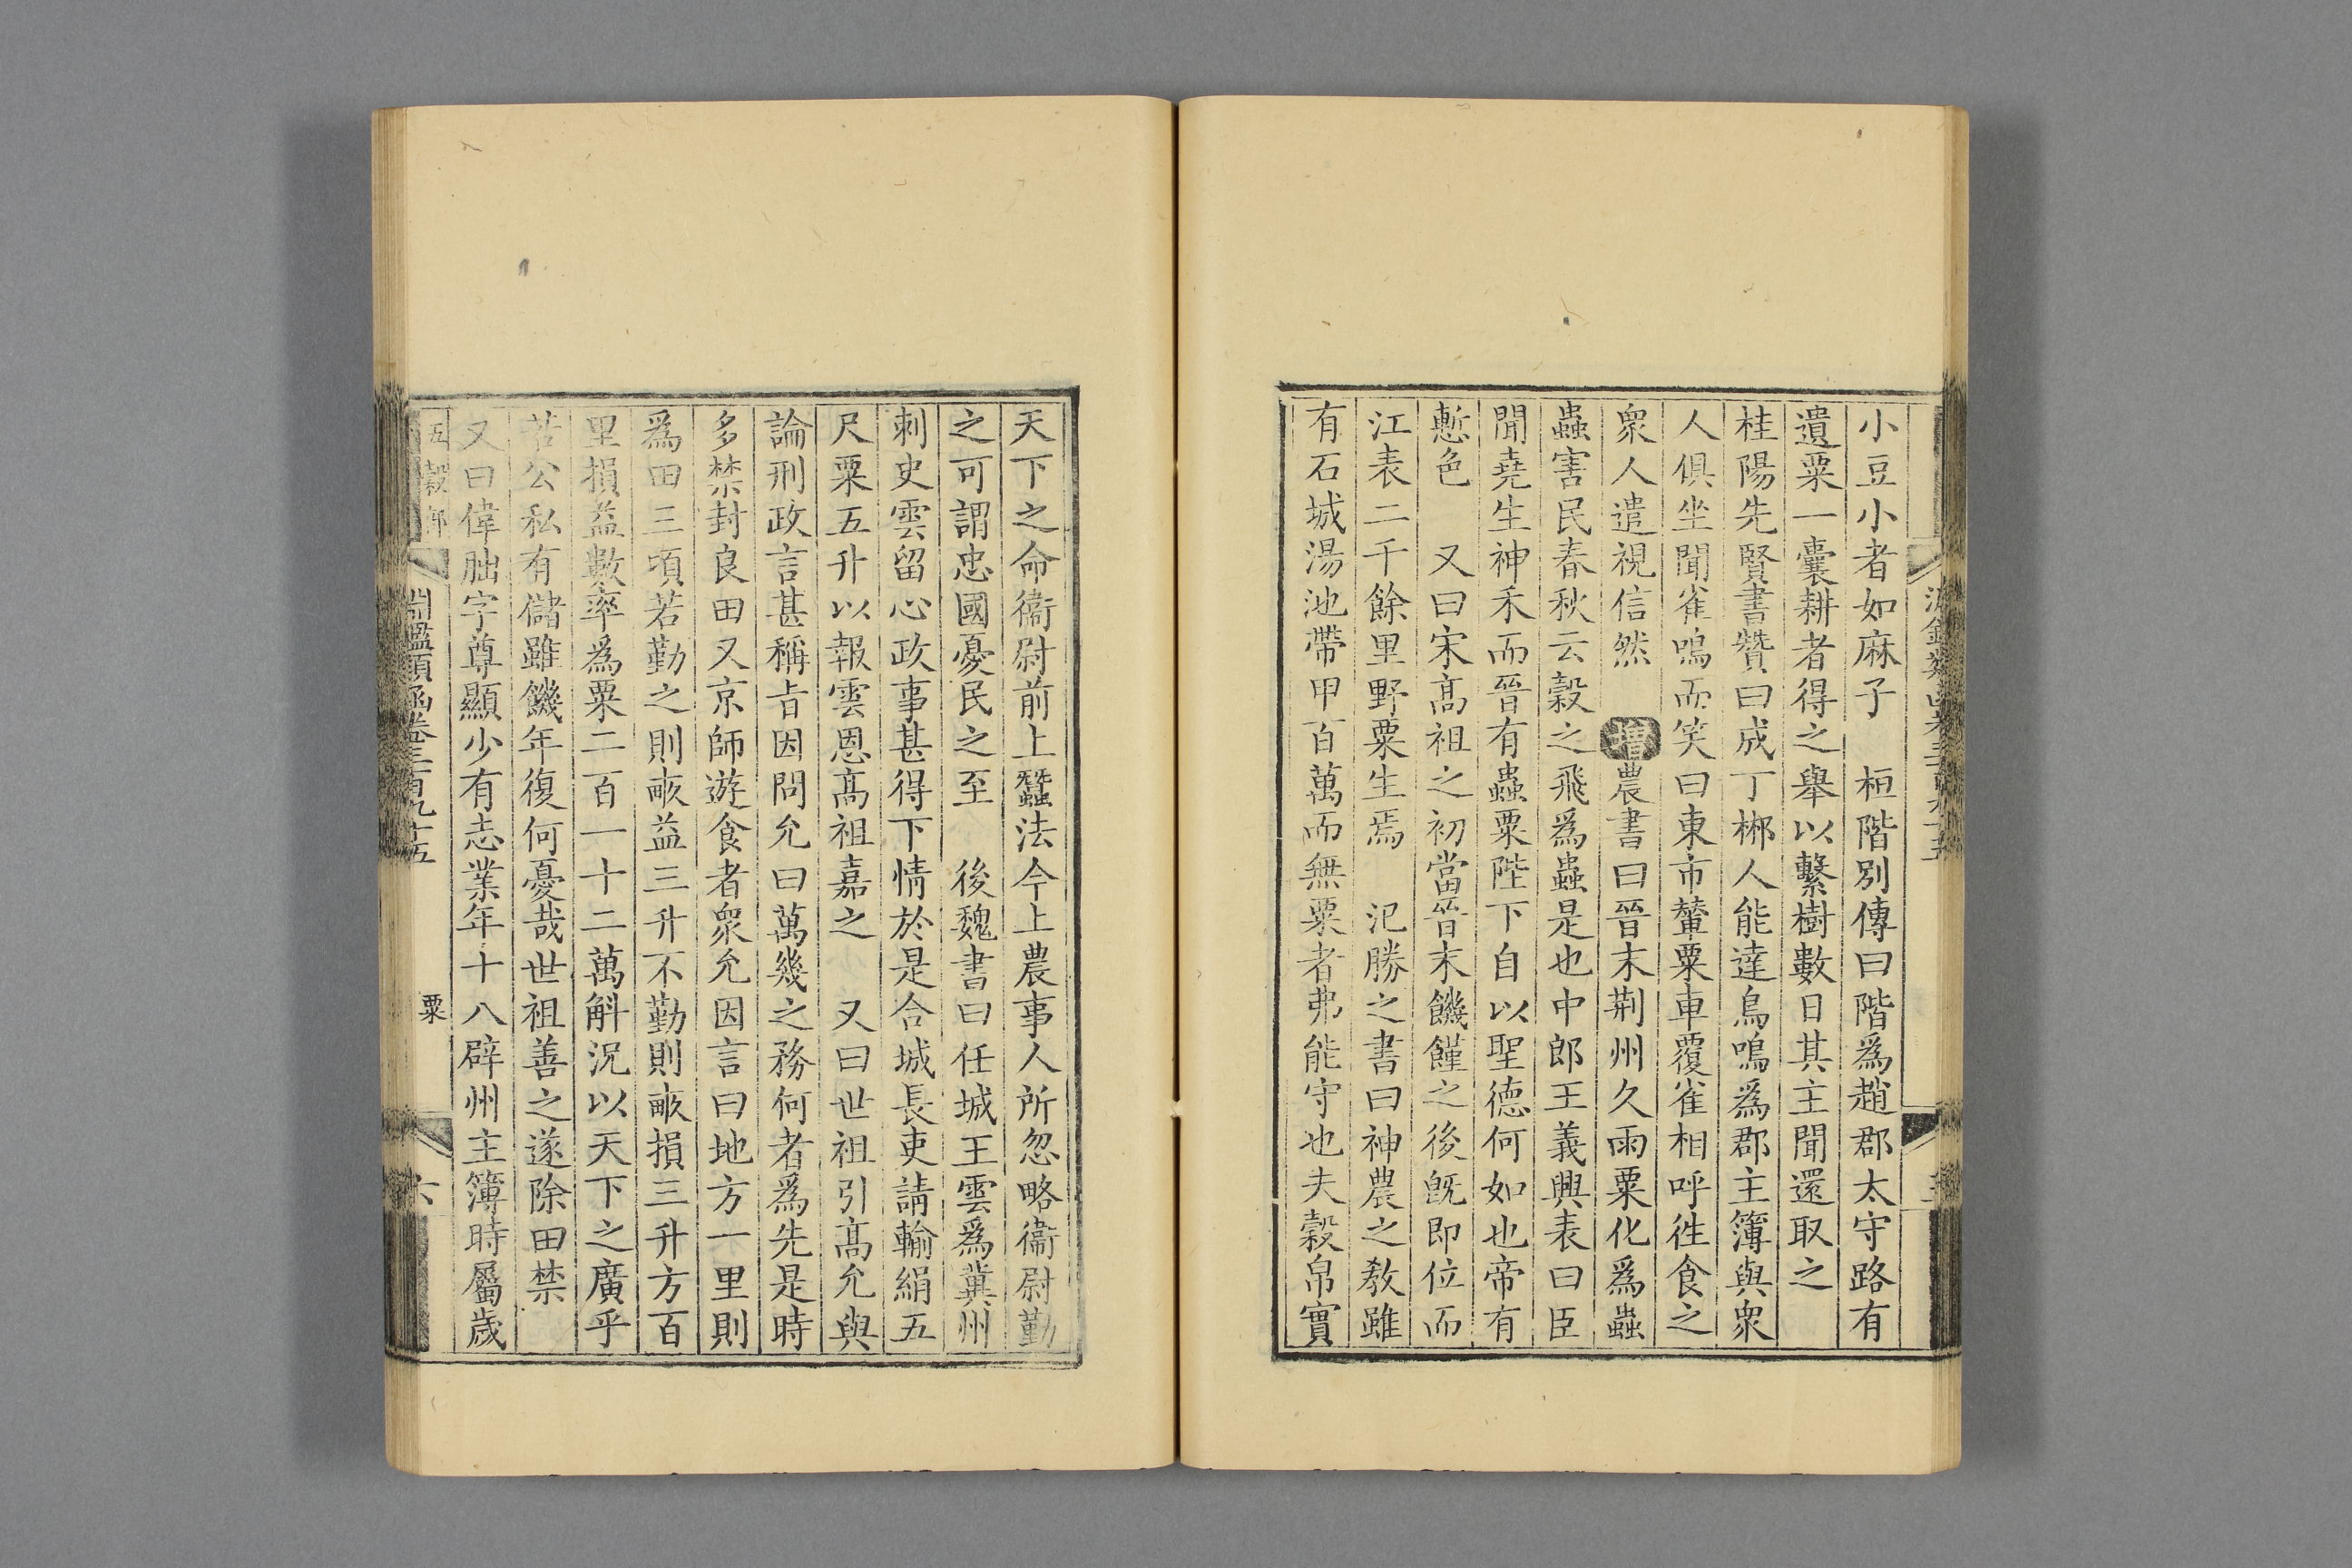 小豆小者如麻子　桓階別傳曰階爲趙郡太守路有
遺粟一囊耕者得之舉以繫樹數日其主聞還取之
桂陽先賢書贊曰成丁郴人能達鳥鳴爲郡主簿與衆
人俱坐聞雀鳴而笑曰東市輦粟車覆雀相呼徃食之
衆人遣視信然　增農書曰晉末荆州久雨粟化爲蟲
蟲害民春秋云穀之飛爲蟲是也中郎王義興表曰臣
聞堯生神禾而晉有蟲粟陛下自以聖德何如也帝有
慙色　又曰宋高祖之初當晉末饑饉之後旣即位而
江表二千餘里野粟生焉　汜勝之書曰神農之敎雖
有石城湯池帶甲百萬而無粟者弗能守也夫穀帛實
天下之命衞尉前上蠶法今上農事人所忽略衞尉勤
之可謂忠國憂民之至　後魏書曰任城王雲爲冀州
刺史雲留心政事甚得下情於是合城長吏請輸絹五
尺粟五升以報雲恩高祖嘉之　又曰世祖引高允與
論刑政言甚稱旨因問允曰萬幾之務何者爲先是時
多禁封良田又京師遊食者衆允因言曰地方一里則
爲田三頃若勤之則畝益三升不勤則畝損三升方百
里損益數率爲粟二百一十二萬斛況以天下之廣乎
若公私有儲雖饑年復何憂哉世祖善之遂除田禁
又曰偉朏字尊顯少有志業年十八辟州主簿時屬歲
五穀部　淵鑑類函卷三百九十五　粟　六